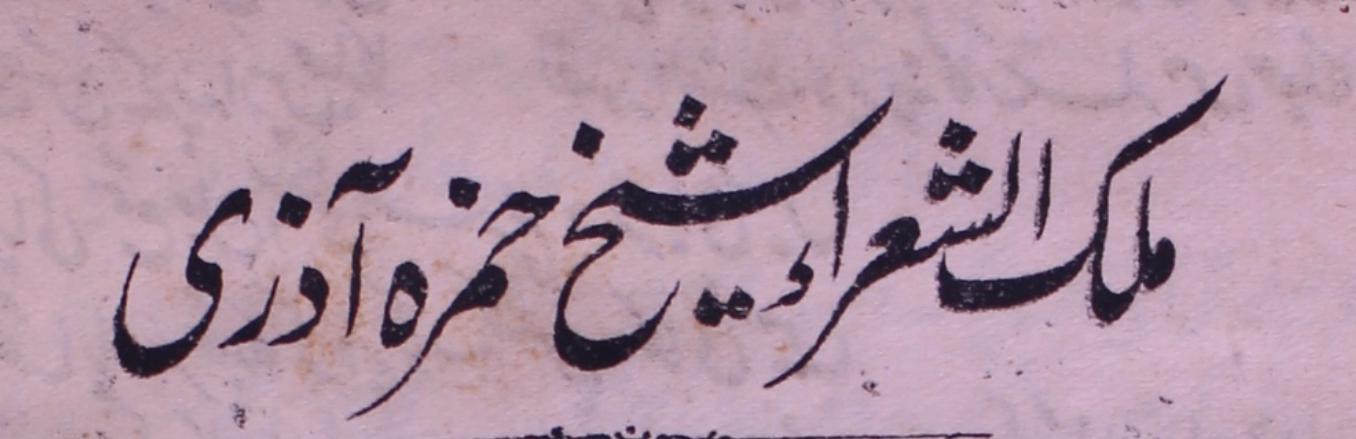 ملک الشعراء شیخ حمزہ آذری